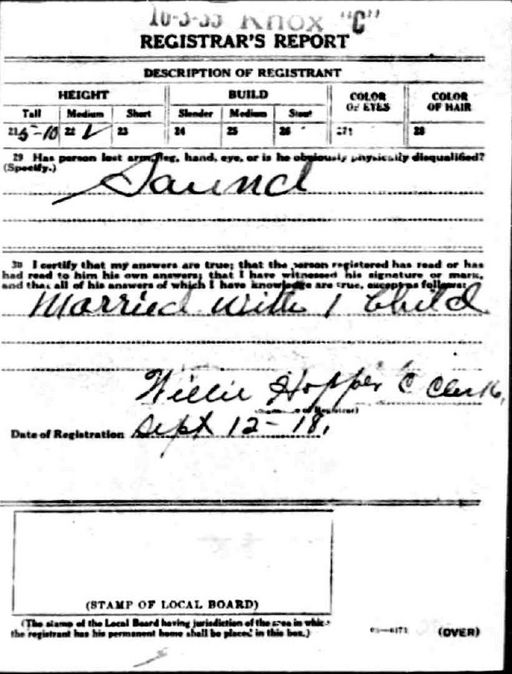 16-3-33 KNOX "C"
REGISTRAR'S REPORT
DESCRIPTION OF REGISTRANT
HEIGHT BUILD COLOR OF EYES COLOR OF HAIR
Tall Medium Short Slender Medium Stout
21 5-10 22 ✓ 23 24 25 26 27 28
29 Has person lost arm, leg, hand, eye, or is he obviously physically disqualified?
(Specify.)
Saund
30 I certify that my answers are true; that the person registered has read or has
had read to him his own answers; that I have witnessed his signature or mark,
and that all of his answers of which I have knowledge are true, except as follows:
Married with 1 Child
Willie Hopper C Clerk,
of Registrar)
Date of Registration Sept 12-18,
(STAMP OF LOCAL BOARD)
(The stamp of the Local Board having jurisdiction of the area in which
the registrant has his permanent home shall be placed in this box.)
(OVER)